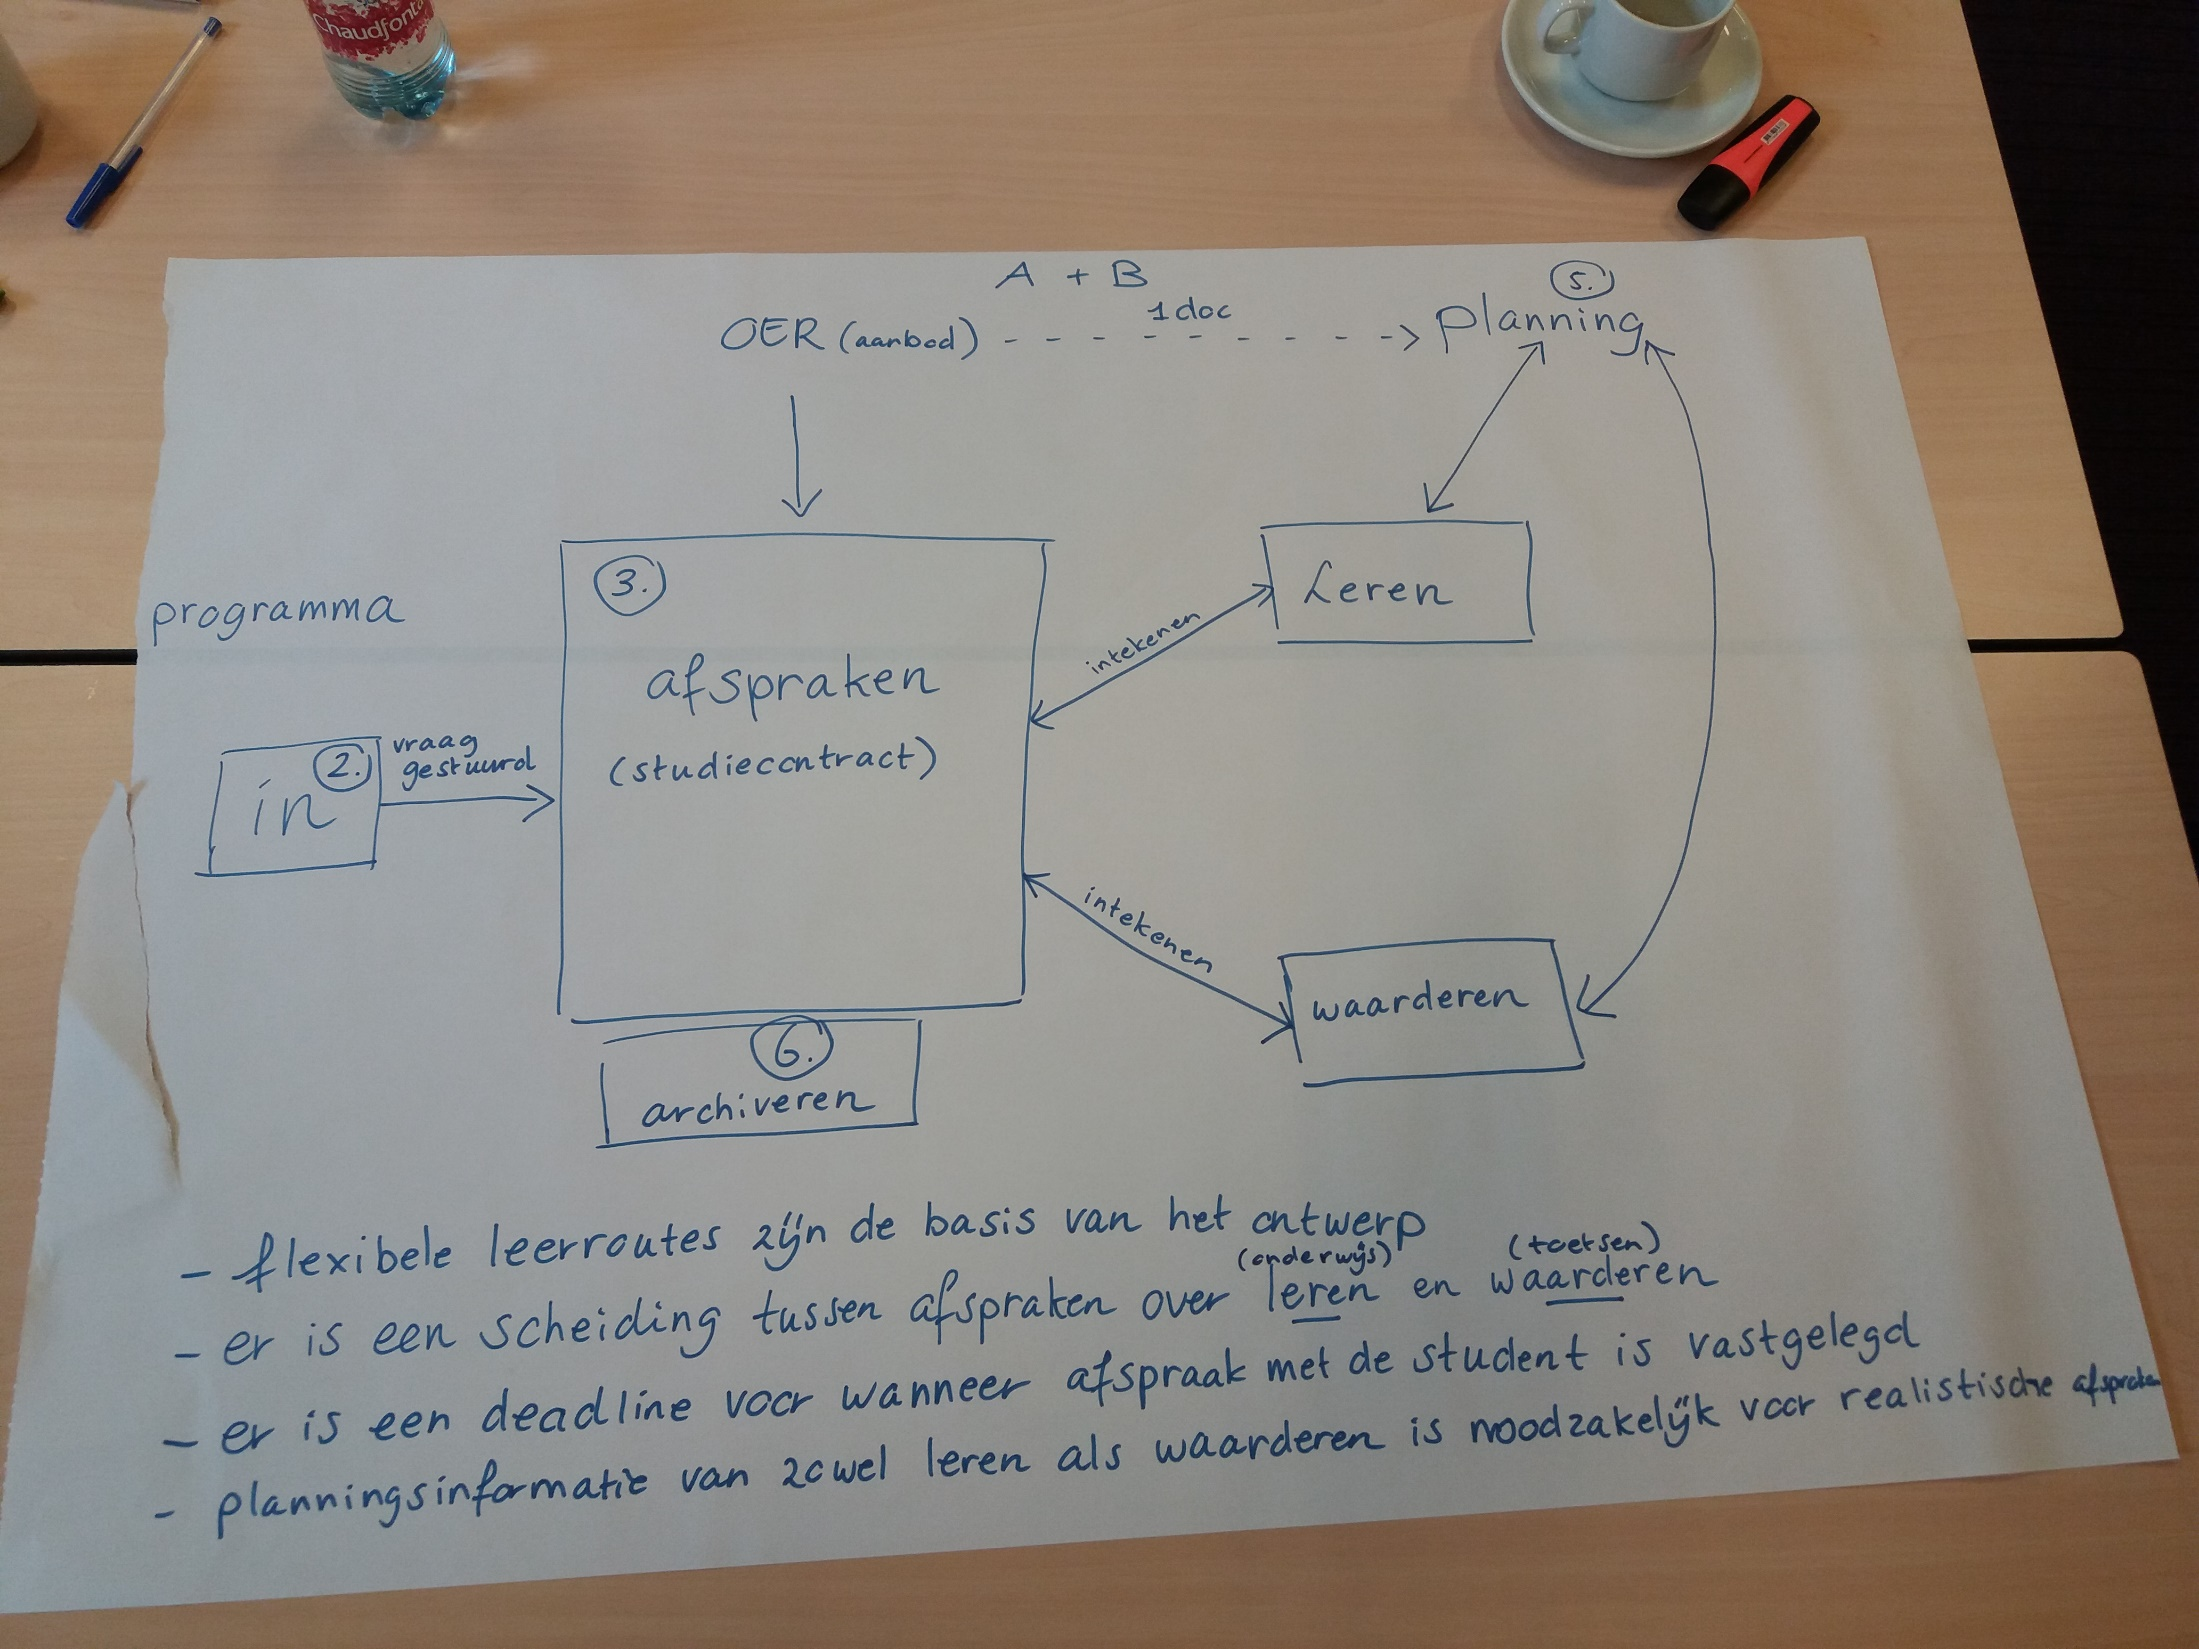 Chaudfont
A + B
5.
OER (aanbod) - - - - - - - - -> planning
1 doc
3.
programma
afspraken
(studiecontract)
2.
in
vraag
gestuurd
intekenen
Leren
intekenen
waarderen
6.
archiveren
- flexibele leerroutes zijn de basis van het ontwerp
(onderwijs) (toetsen)
- er is een scheiding tussen afspraken over leren en waarderen
- er is een deadline voor wanneer afspraak met de student is vastgelegd
- planningsinformatie van zowel leren als waarderen is noodzakelijk voor realistische afspraken